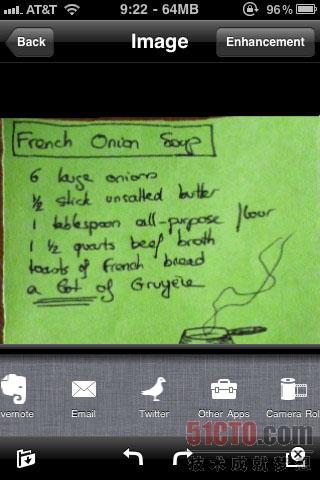 AT&T 9:22 - 64MB 96%
Back Image Enhancement
French Onion Soup
6 large onions
1/2 stick unsalted butter
1 tablespoon all-purpose flour
1 1/2 quarts beef broth
toasts of French bread
a lot of Gruyère
vernote Email Twitter Other Apps Camera Rol
51CTO.com
技术成就梦想